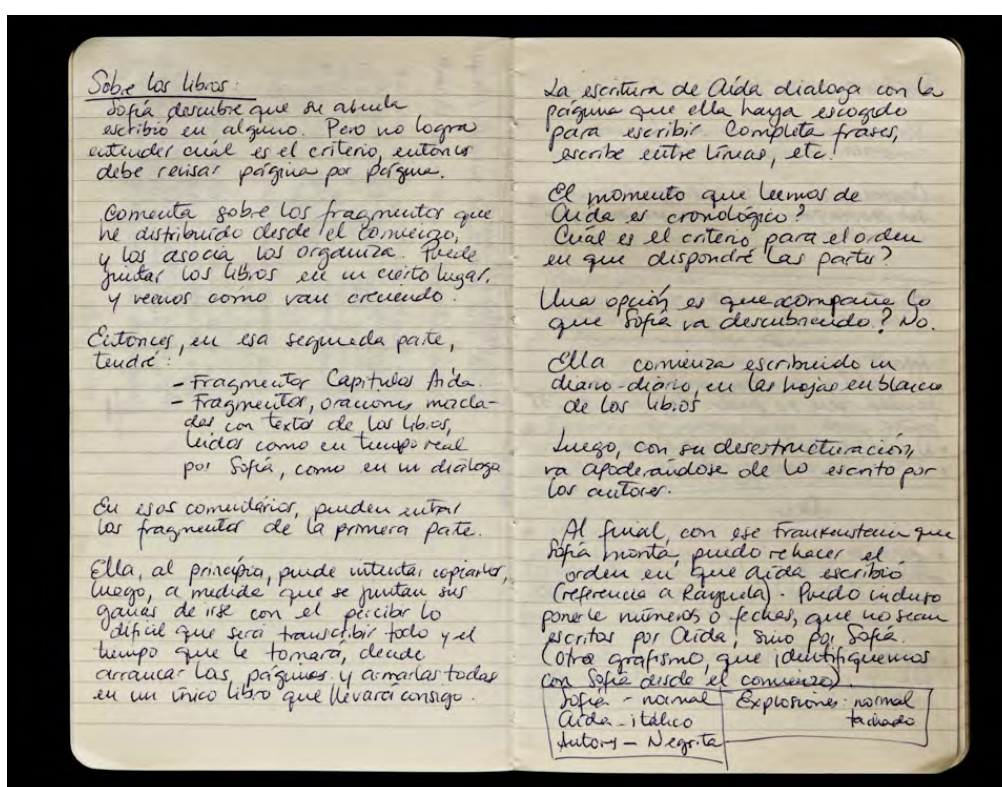 Sobre los libros:
Sofía descubre que su abuela
escribió en alguno. Pero no logra
entender cuál es el criterio, entonces
debe revisar página por página.
Comenta sobre los fragmentos que
he distribuido desde el comienzo,
y los asocia, los organiza. Puede
juntar los libros en un cierto lugar,
y vemos como van creciendo.
Entonces, en esa segunda parte,
tendré:
- Fragmentos Capítulos Aída.
- Fragmentos, oraciones mezcla-
das con textos de los libros,
leídos como en tiempo real
por Sofía, como en un diálogo
En esos comentarios, pueden entrar
los fragmentos de la primera parte.
Ella, al principio, puede intentar copiarlos,
luego, a medida que se juntan sus
ganas de irse con el percibir lo
difícil que será transcribir todo y el
tiempo que le tomará, decide
arrancar las páginas y armarlas todas
en un único libro que llevará consigo.
La escritura de Aída dialoga con la
página que ella haya escogido
para escribir. Completa frases,
escribe entre líneas, etc.
El momento que leemos de
Aída es cronológico?
Cuál es el criterio para el orden
en que dispondré las partes?
Una opción es que acompañe lo
que Sofía va descubriendo? No.
Ella comienza escribiendo un
diario-diario, en las hojas en blanco
de los libros
Luego, con su desestructuración,
va apoderándose de lo escrito por
los autores.
Al final, con ese Frankenstein que
Sofía monta, puedo rehacer el
orden en que Aída escribió
(referencia a Rayuela). Puedo incluso
ponerle números o fechas, que no sean
escritas por Aída, sino por Sofía.
(otro grafismo, que identifiquemos
con Sofía desde el comienzo)
Sofía - normal
Aída - itálico
Autores - Negrita
Explosiones: normal
tachado